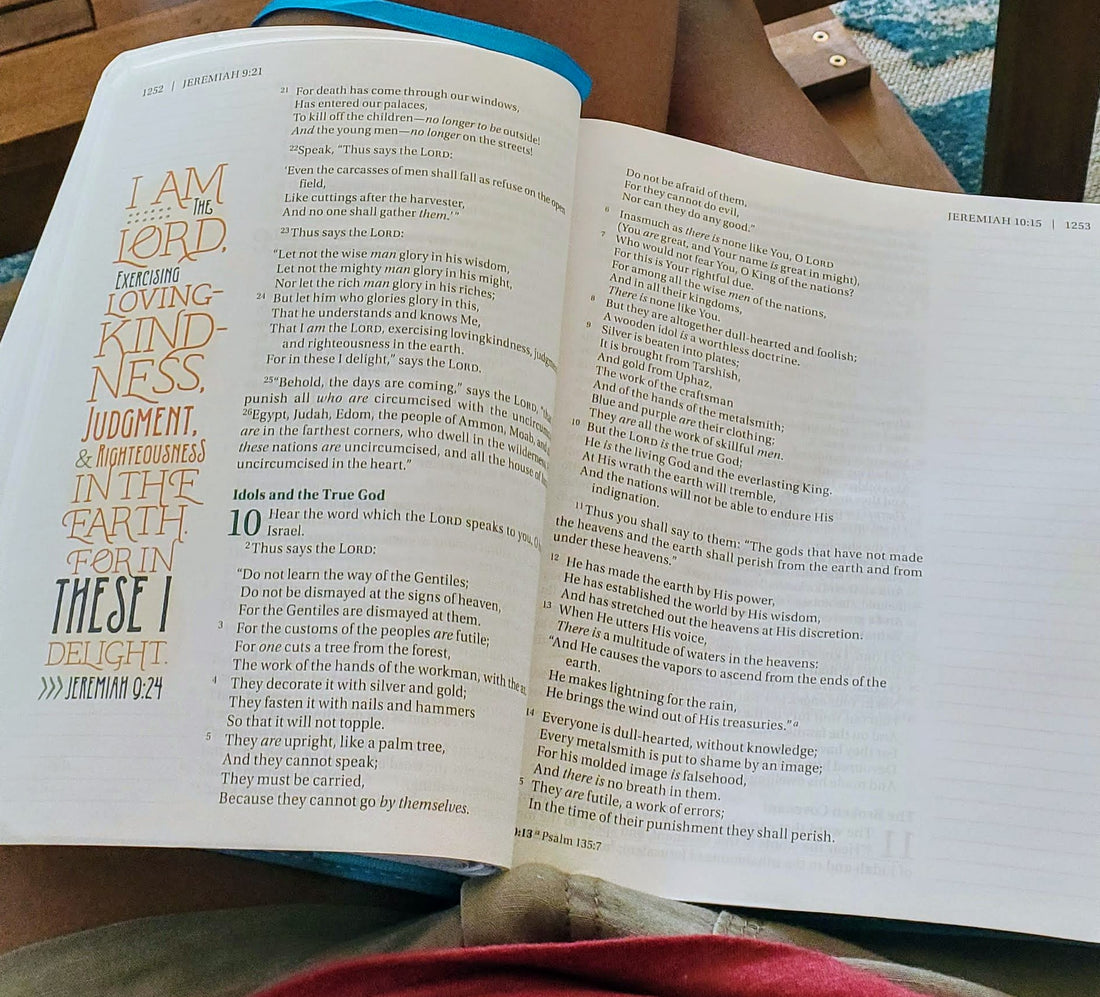 1252 | JEREMIAH 9:21
I AM
THE
LORD,
EXERCISING
LOVING-
KIND-
NESS,
JUDGMENT,
& RIGHTEOUSNESS
IN THE
EARTH.
FOR IN
THESE I
DELIGHT.
>>> JEREMIAH 9:24
21 For death has come through our windows,
Has entered our palaces,
To kill off the children—no longer to be outside!
And the young men—no longer on the streets!
22Speak, "Thus says the LORD:
'Even the carcasses of men shall fall as refuse on the open
field,
Like cuttings after the harvester,
And no one shall gather them.'"
23Thus says the LORD:
"Let not the wise man glory in his wisdom,
Let not the mighty man glory in his might,
Nor let the rich man glory in his riches;
24 But let him who glories glory in this,
That he understands and knows Me,
That I am the LORD, exercising lovingkindness,
and righteousness in the earth.
For in these I delight," says the LORD.
25"Behold, the days are coming," says the LORD,
punish all who are circumcised with the
26Egypt, Judah, Edom, the people of Ammon, Moab,
are in the farthest corners, who dwell in the
these nations are uncircumcised, and all the house of
uncircumcised in the heart."
Idols and the True God
10 Hear the word which the LORD speaks to you,
Israel.
2Thus says the LORD:
"Do not learn the way of the Gentiles;
Do not be dismayed at the signs of heaven,
For the Gentiles are dismayed at them.
3 For the customs of the peoples are futile;
For one cuts a tree from the forest,
The work of the hands of the workman, with the
4 They decorate it with silver and gold;
They fasten it with nails and hammers
So that it will not topple.
5 They are upright, like a palm tree,
And they cannot speak;
They must be carried,
Because they cannot go by themselves.
JEREMIAH 10:15 | 1253
Do not be afraid of them,
For they cannot do evil,
Nor can they do any good."
6 Inasmuch as there is none like You, O LORD
(You are great, and Your name is great in might),
7 Who would not fear You, O King of the nations?
For this is Your rightful due.
For among all the wise men of the nations,
And in all their kingdoms,
There is none like You.
8 But they are altogether dull-hearted and foolish;
A wooden idol is a worthless doctrine.
9 Silver is beaten into plates;
It is brought from Tarshish,
And gold from Uphaz,
The work of the craftsman
And of the hands of the metalsmith;
Blue and purple are their clothing;
They are all the work of skillful men.
10 But the LORD is the true God;
He is the living God and the everlasting King.
At His wrath the earth will tremble,
And the nations will not be able to endure His
indignation.
11 Thus you shall say to them: "The gods that have not made
the heavens and the earth shall perish from the earth and from
under these heavens."
12 He has made the earth by His power,
He has established the world by His wisdom,
And has stretched out the heavens at His discretion.
13 When He utters His voice,
There is a multitude of waters in the heavens:
"And He causes the vapors to ascend from the ends of the
earth.
He makes lightning for the rain,
He brings the wind out of His treasuries."a
14 Everyone is dull-hearted, without knowledge;
Every metalsmith is put to shame by an image;
For his molded image is falsehood,
And there is no breath in them.
5 They are futile, a work of errors;
In the time of their punishment they shall perish.
:13 a Psalm 135:7